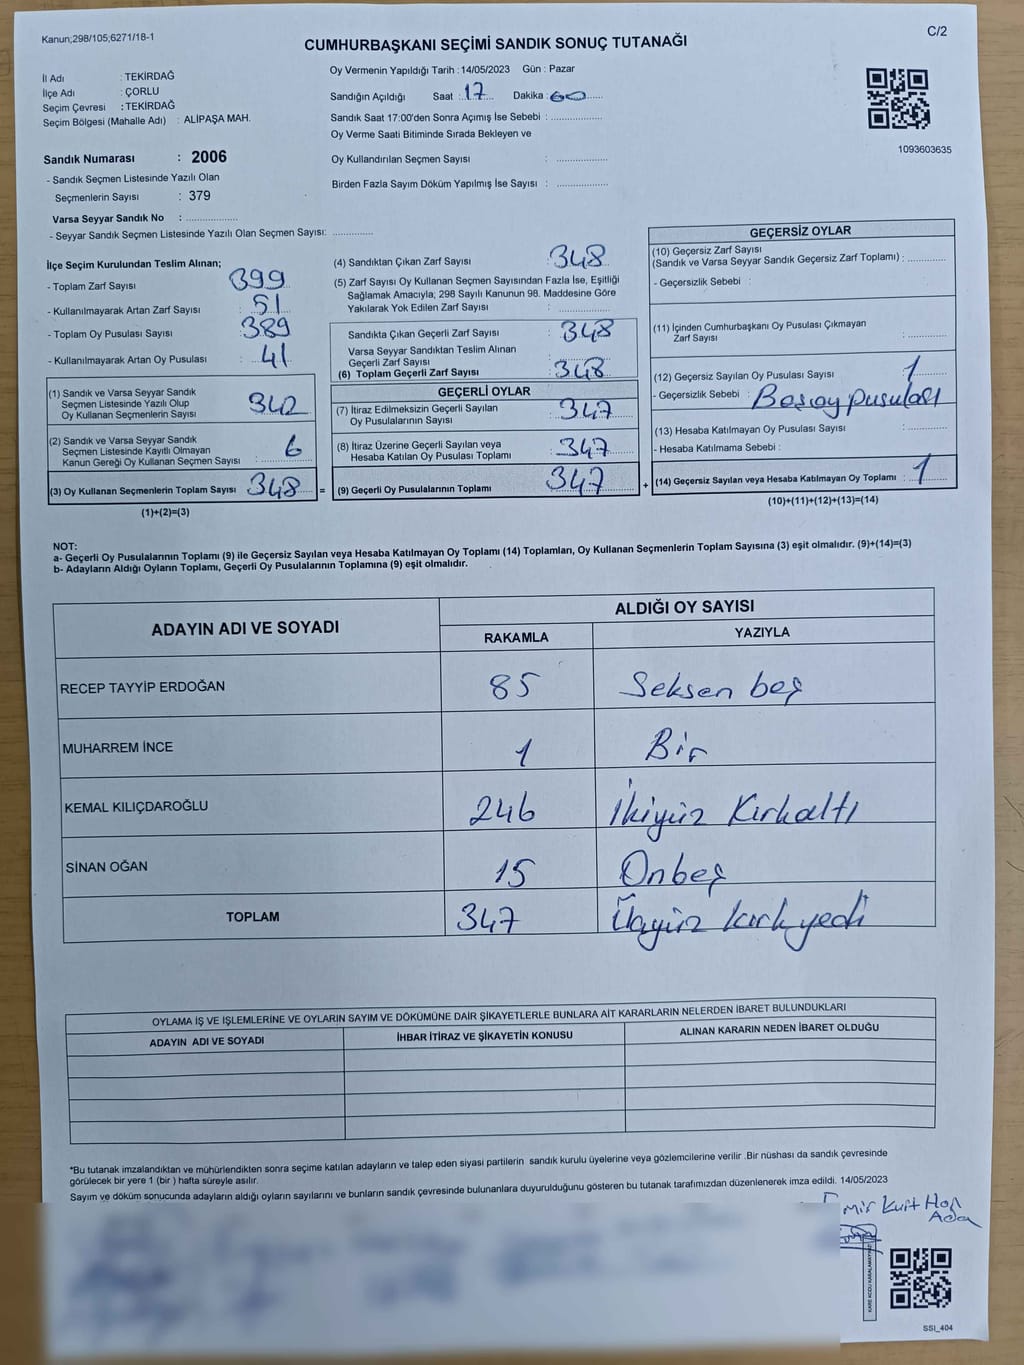 Kanun;298/105;6271/18-1
C/2
CUMHURBAŞKANI SEÇİMİ SANDIK SONUÇ TUTANAĞI
İl Adı : TEKİRDAĞ
İlçe Adı : ÇORLU
Seçim Çevresi : TEKİRDAĞ
Seçim Bölgesi (Mahalle Adı) : ALİPAŞA MAH.
Oy Vermenin Yapıldığı Tarih : 14/05/2023 Gün : Pazar
Sandığın Açıldığı Saat : 17 Dakika : 60
Sandık Saat 17:00'den Sonra Açımış İse Sebebi :
Oy Verme Saati Bitiminde Sırada Bekleyen ve
Oy Kullandırılan Seçmen Sayısı :
Birden Fazla Sayım Döküm Yapılmış İse Sayısı :
1093603635
Sandık Numarası : 2006
- Sandık Seçmen Listesinde Yazılı Olan
Seçmenlerin Sayısı : 379
Varsa Seyyar Sandık No :
- Seyyar Sandık Seçmen Listesinde Yazılı Olan Seçmen Sayısı:
İlçe Seçim Kurulundan Teslim Alınan;
- Toplam Zarf Sayısı : 399
- Kullanılmayarak Artan Zarf Sayısı : 51
- Toplam Oy Pusulası Sayısı : 389
- Kullanılmayarak Artan Oy Pusulası : 41
(1) Sandık ve Varsa Seyyar Sandık
Seçmen Listesinde Yazılı Olup
Oy Kullanan Seçmenlerin Sayısı : 342
(2) Sandık ve Varsa Seyyar Sandık
Seçmen Listesinde Kayıtlı Olmayan
Kanun Gereği Oy Kullanan Seçmen Sayısı : 6
(3) Oy Kullanan Seçmenlerin Toplam Sayısı : 348 =
(1)+(2)=(3)
(4) Sandıktan Çıkan Zarf Sayısı : 348
(5) Zarf Sayısı Oy Kullanan Seçmen Sayısından Fazla İse, Eşitliği
Sağlamak Amacıyla; 298 Sayılı Kanunun 98. Maddesine Göre
Yakılarak Yok Edilen Zarf Sayısı :
Sandıkta Çıkan Geçerli Zarf Sayısı : 348
Varsa Seyyar Sandıktan Teslim Alınan
Geçerli Zarf Sayısı :
(6) Toplam Geçerli Zarf Sayısı : 348
GEÇERLİ OYLAR
(7) İtiraz Edilmeksizin Geçerli Sayılan
Oy Pusulalarının Sayısı : 347
(8) İtiraz Üzerine Geçerli Sayılan veya
Hesaba Katılan Oy Pusulası Toplamı : 347
(9) Geçerli Oy Pusulalarının Toplamı : 347 +
GEÇERSİZ OYLAR
(10) Geçersiz Zarf Sayısı
(Sandık ve Varsa Seyyar Sandık Geçersiz Zarf Toplamı) :
- Geçersizlik Sebebi :
(11) İçinden Cumhurbaşkanı Oy Pusulası Çıkmayan
Zarf Sayısı :
(12) Geçersiz Sayılan Oy Pusulası Sayısı : 1
- Geçersizlik Sebebi : Boş oy pusulası
(13) Hesaba Katılmayan Oy Pusulası Sayısı :
- Hesaba Katılmama Sebebi :
(14) Geçersiz Sayılan veya Hesaba Katılmayan Oy Toplamı : 1
(10)+(11)+(12)+(13)=(14)
NOT:
a- Geçerli Oy Pusulalarının Toplamı (9) ile Geçersiz Sayılan veya Hesaba Katılmayan Oy Toplamı (14) Toplamları, Oy Kullanan Seçmenlerin Toplam Sayısına (3) eşit olmalıdır. (9)+(14)=(3)
b- Adayların Aldığı Oyların Toplamı, Geçerli Oy Pusulalarının Toplamına (9) eşit olmalıdır.
ADAYIN ADI VE SOYADI
ALDIĞI OY SAYISI
RAKAMLA YAZIYLA
RECEP TAYYİP ERDOĞAN 85 Seksen beş
MUHARREM İNCE 1 Bir
KEMAL KILIÇDAROĞLU 246 İkiyüz Kırkaltı
SİNAN OĞAN 15 Onbeş
TOPLAM 347 Üçyüz kırk yedi
OYLAMA İŞ VE IŞLEMLERİNE VE OYLARIN SAYIM VE DÖKÜMÜNE DAİR ŞİKAYETLERLE BUNLARA AİT KARARLARIN NELERDEN İBARET BULUNDUKLARI
ADAYIN ADI VE SOYADI İHBAR İTİRAZ VE ŞİKAYETİN KONUSU ALINAN KARARIN NEDEN İBARET OLDUĞU
*Bu tutanak imzalandıktan ve mühürlendikten sonra seçime katılan adayların ve talep eden siyasi partilerin sandık kurulu üyelerine veya gözlemcilerine verilir .Bir nüshası da sandık çevresinde
görülecek bir yere 1 (bir ) hafta süreyle asılır.
Sayım ve döküm sonucunda adayların aldığı oyların sayılarını ve bunların sandık çevresinde bulunanlara duyurulduğunu gösteren bu tutanak tarafımızdan düzenlenerek imza edildi. 14/05/2023
KARE KODU KARALAMAYINIZ!
SSI_404